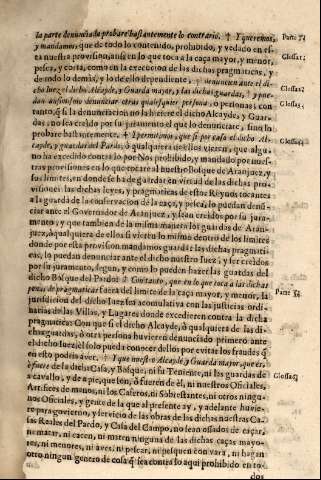 la parte denunciada probare bastantemente lo contrario. † Y queremos, Parte 54
y mandamos, que de todo lo contenido, prohibido, y vedado en es-
ta nuestra provision, ansi en lo que toca a la caça mayor, y menor, Glossa 1
pesca, y corta, como en la execucion de las dichas pragmaticas, y
de todo lo demàs, y lo de ello dependiente, † denuncien ante el di- Glossa 2
cho Iuez el dicho Alcayde, y Guarda mayor, y las dichas guardas, † y pue-
dan ansimismo denunciar otras qualesquier persona, o personas; con Glossa 3
tanto, q̃ si la denunciacion no la hiziere el dicho Alcayde, y Guar-
das, no sea creido por su juramento el que lo denunciare, sino lo
probare bastantemente. † Y permitimos, que si por caso el dicho Al- Glossa 4
cayde, y guardas del Pardo, ò qualquiera de ellos vieren, que algu-
no ha excedido contra lo por Nos prohibido, y mandado por nues-
tras provisiones en lo que tocare al nuestro Bosque de Aranjuez, y
sus limites, en donde se ha de guardar en virtud de las dichas pro-
visiones las dichas leyes, y pragmaticas de estos Reynos tocantes
a la guarda de la conservacion de la caça, y pesca, lo puedan denũ-
ciar ante el Governador de Aranjuez, y sean creidos por su jura-
mento, y que tambien de la misma manera los guardas de Aran-
juez, ò qualquiera de ellos si vieren lo mismo dentro de los limites
donde por esta provision mandamos guardar las dichas pragmati-
cas, lo puedan denunciar ante el dicho nuestro Iuez, y ser creidos
por su juramento, segun, y como lo pueden hazer las guardas del
dicho Bosque del Pardo. † Con tanto, que en lo que toca a las dichas Parte 55
penas de pragmaticas fuera del limite de la caça mayor, y menor, la
jurisdicion del dicho Iuez sea acumulativa con las justicias ordi-
narias de las Villas, y Lugares donde excedieren contra la dicha
pragmatica: Con que si el dicho Alcayde, ò qualquiera de las di-
chas guardas, ò otra persona huvieren denunciado primero ante
el dicho Iuez, èl solo pueda conocer dellos por evitar los fraudes q̃
en esto podria aver. † Y que nuestro Alcayde, y Guarda mayor, que es,
ò fuere de la dicha Casa, y Bosque, ni su Teniente, ni las guardas de Glossa
a cavallo, y de a pie, que son, ò fueren de èl, ni nuestros Oficiales,
Artifices de manos, ni los Caseros, ni Sobrestantes, ni otros ningu-
nos Oficiales, y gente de la que al presente ay, y adelante huvie-
re para govierno, y servicio de las obras de las dichas nuestras Ca-
sas Reales del Pardo, y Casa del Campo, no sean ossados de caçar,
ni matar, ni cacen, ni maten ninguna de las dichas caças mayo-
res, ni menores, ni aves, ni pescar, ni pesquen con vara, ni hagan
otro ningun genero de cosa q̃ sea contra lo aqui prohibido en to-
dos